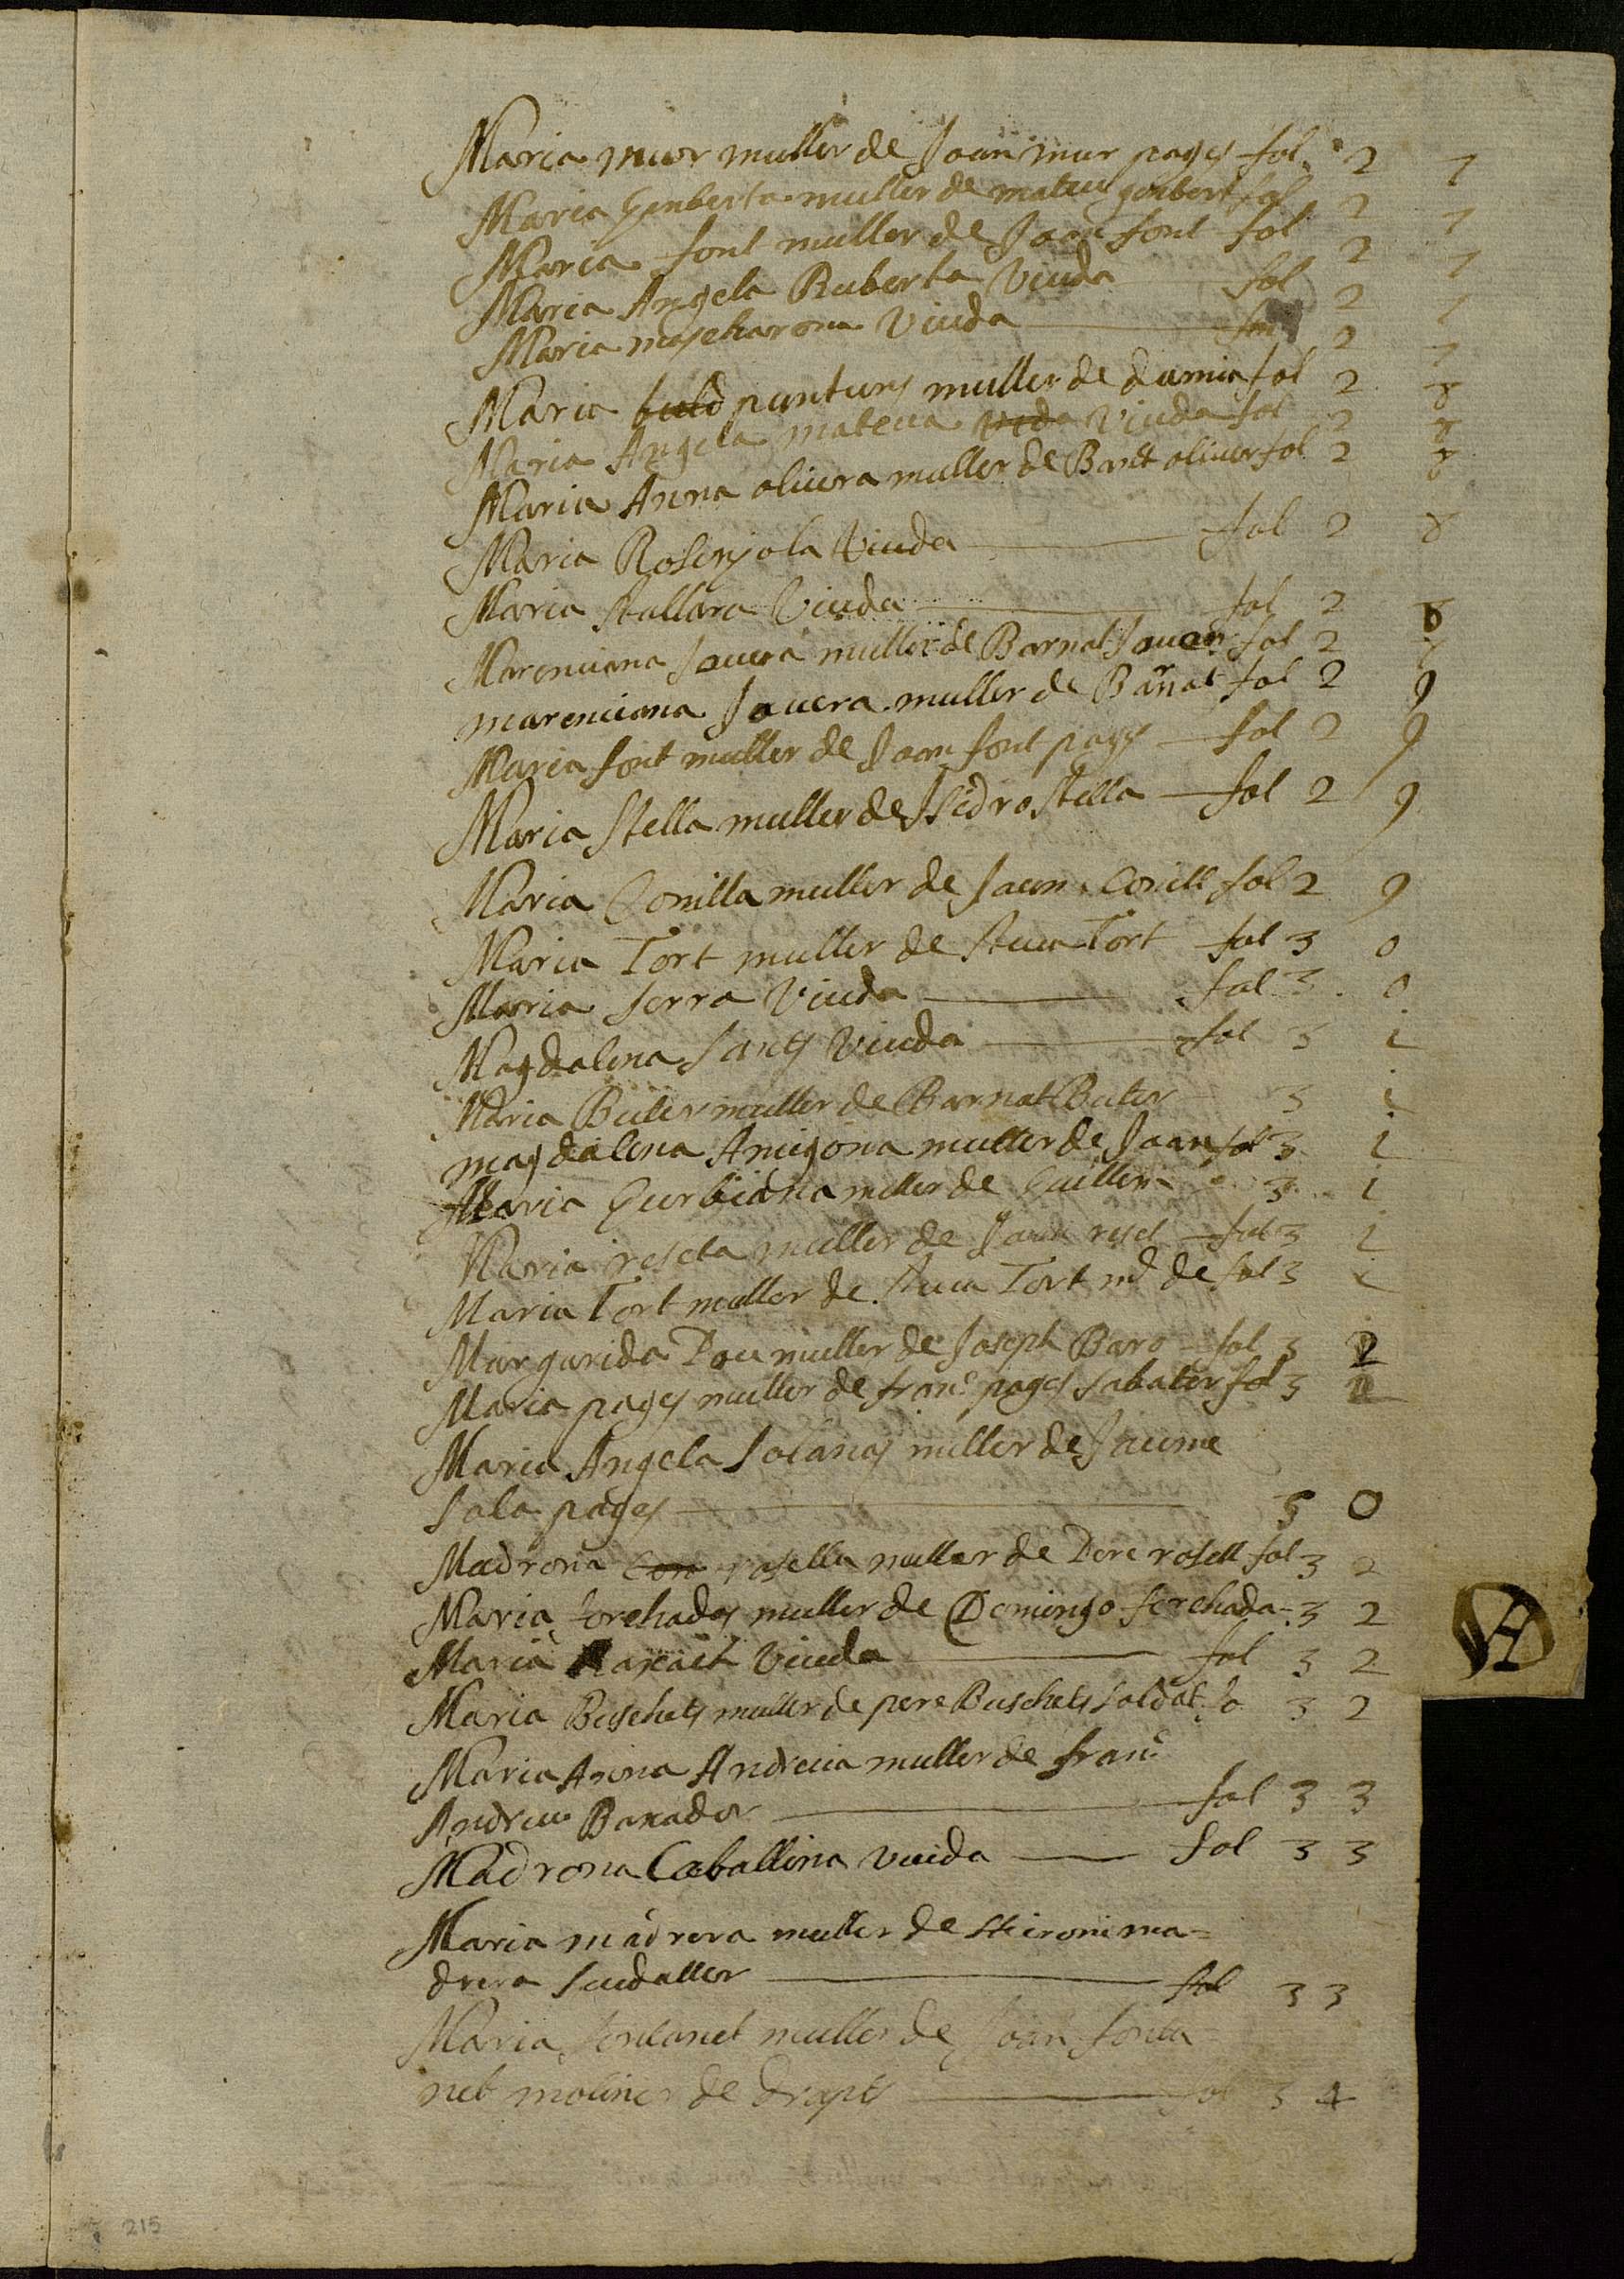 Maria mur muller de Joan mur pages fol 2 7
Maria Gonberta muller de mateu gonbert fol 2 7
Maria font muller de Joan font fol 2 7
Maria Angela Ruberta Viuda fol 2 7
Maria mascharona Viuda fol 2 7
Maria punturs muller de damia fol 2 8
Maria Angela mateua vida Viuda fol 2 8
Maria Anna oliuera muller de Bart oliuer fol 2 8
Maria Rosinyola Viuda fol 2 8
Maria Stallara Viuda fol 2 8
Marenciana Jouera muller de Barnat Jouer fol 2
marenciana Jouera muller de Barnat fol 2 9
Maria font muller de Joan font pages fol 2 9
Maria Stella muller de Isidro Stella fol 2 9
Maria Conilla muller de Joan Conill fol 2 9
Maria Tort muller de Steua Tort fol 3 0
Maria Serra Viuda fol 3 0
Magdalena Sants Viuda fol 3 i
Maria Buter muller de Barnat Buter 3 i
magdalena Amigona muller de Joan fol 3 i
Maria Gurbiana muller de Guillem 3 i
Maria reseta muller de Joan reset fol 3 i
Maria Tort muller de Steua Tort md de fol 3 i
Margarida Dou muller de Joseph Baro fol 3 2
Maria pages muller de franc pages Sabater fol 3 2
Maria Angela Solanas muller de Jaume
Sala pages 3 0
Madrona Con rosella muller de Pere rosell fol 3 2
Maria forchades muller de Domingo forchada 3 2
Maria Viuda fol 3 2
Maria Buschets muller de pere Buschets Soldat fo 3 2
Maria Anna Andreua muller de franc
Andreu Baxador fol 3 3
Madrona Caballina viuda fol 3 3
Maria madrera muller de Hieroni ma=
drera Sucdaller fol 3 3
Maria fontanet muller de Joan fonta
net moliner de draps fol 3 4
215